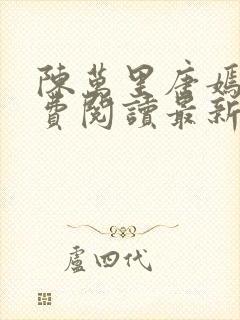 陳萬里唐嫣
費閱讀最新
盧四代